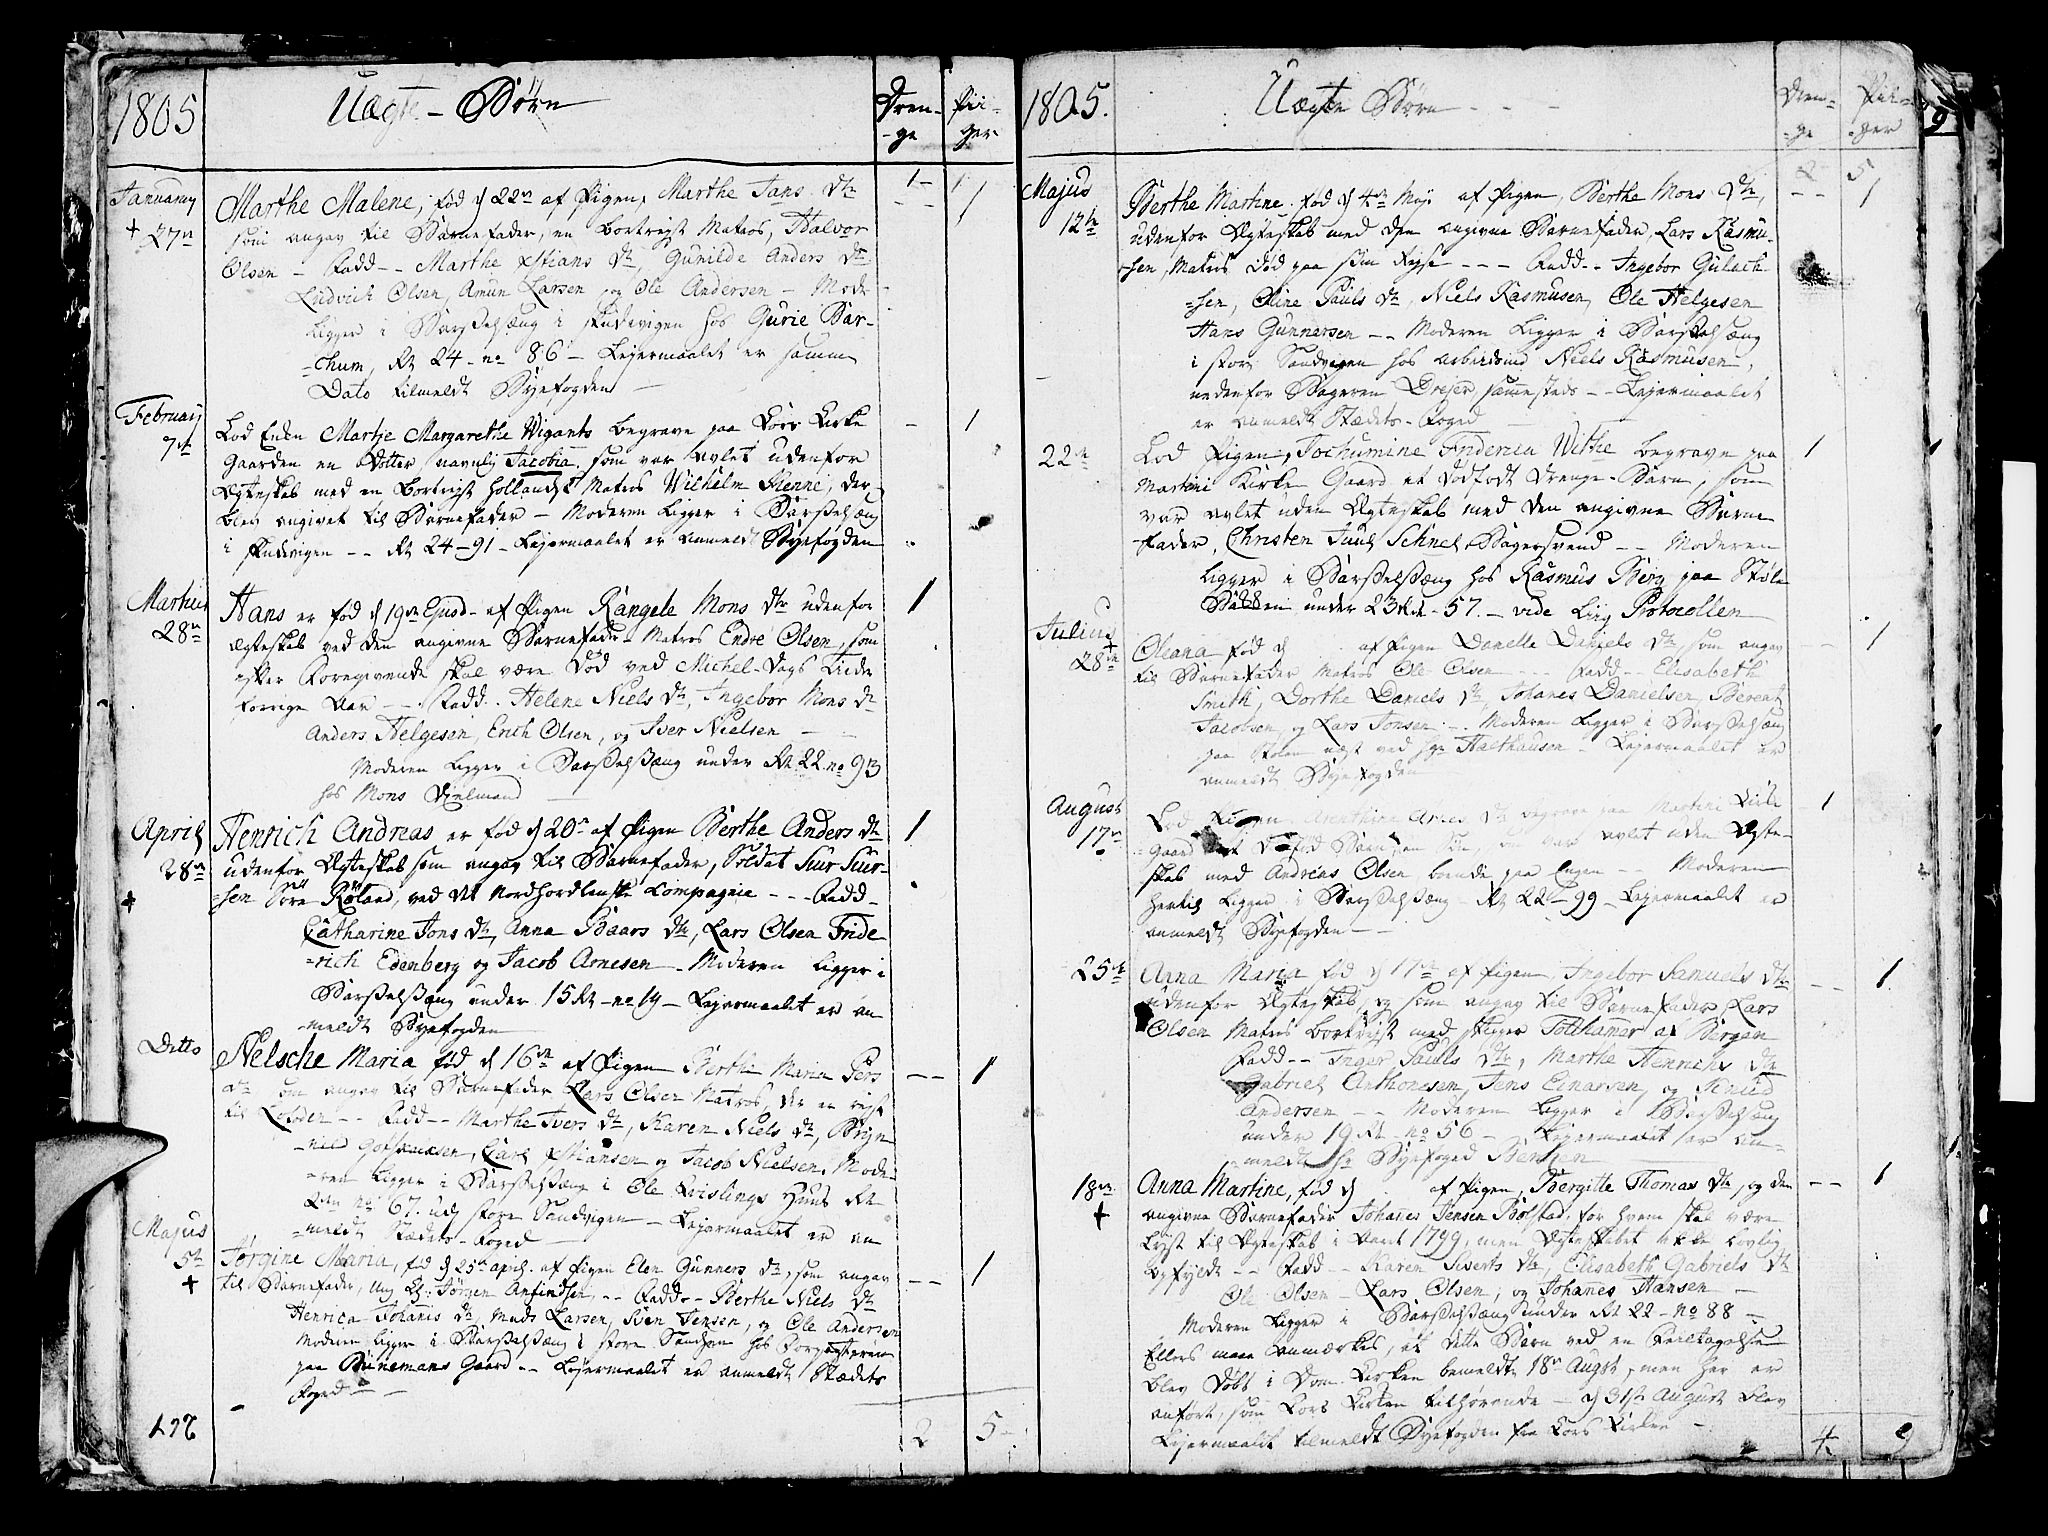 1805
Uægte - Børn
Dren-
-ge
Pii-
ger
Januarÿ
+ 27de
Marthe Malene, fød d 22de af Pigen, Marthe Jans dtr
som angav til Barnefader, en bortreist Matros, Halvor
Olsen - Fadd -- Marthe Xstians dtr, Gunilde Anders dtr
Ludvich Olsen, Amun Larsen og Ole Andersen - Mode
ligger i Barselsæng i Skudevigen hos Gurie Bar-
=chum, Rt 24 - no 86 - Lejermaalet er samme
Dato tilmeldt Byefogden -
1
Februarÿ
7de
Lod Enken Martje Margarethe Wigants begrave paa Kors Kirke
Gaarden en Dotter navnlig Jacobia som var avlet udenfor
Ægteskab med en bortreist Hollandsk Matros Wilhelm Fienne, der
blev angivet til Barnefader - Moderen ligger i Barselsæng
i Skudevigen -- Rt 24-91 - Lejermaalet er anmeldt Byefogden
1
Martius
28de
Hans er fød d 19de Ejusd. af Pigen Rangele Mons dtr udenfor
Ægteskab ved den angivne Barnefader Matros Endre Olsen, som
efter Foregivende skal være død ved Michel-Dags Tider
forrige Aar --. Fadd.. Helene Niels dtr, Ingebor Mons dtr
Anders Helgesen, Erich Olsen, og Iver Nielsen
Moderen ligger i Barselsæng under Rt 22 no 93
hos Mons
1
April
28de
+
Henrich Andreas er fød d 20de af Pigen Berthe Anders dtr
udenfor Ægteskab som angav til Barnefader, Soldat Siur Siur-
=sen Røland, ved det Nordhordlenske Compagnie --- Fadd-
Catharine Jons dtr, Anna Baars dtr, Lars Olsen Fride
=rich Edenberg og Jacob Arnesen - Moderen ligger i
Barselsæng under 15 Rt - no 19 - Lejermaalet er an
-meldt Byefogden
1
Ditto
Nelsche Maria fød d 16de af Pigen Berthe Maria Pers
dtr som angav til Barnefader Lars Olsen Matros, der er reist
til -- Fadd -- Marthe Ivers dtr, Karen Niels dtr, Bryn
=nild Carl Xstiansen og Jacob Nielsen. Mode
=ren ligger i Barselsæng i Ole Qvislings Huus Rt
no 67. ved Store Sandvigen - Lejermaalet er an
-meldt Stædets-Foged
1
Majus
5te
+
Jørgine Maria, fød d 25de april. af Pigen Elen Gunners dtr, som angav
til Barnefader, Ung K: Jørgen Anfindsen -- Fadd -- Berthe Niels dtr
Henrica Johanis dtr, Mads Larsen, Sven Jensen, og Ole Andersen
Moderen ligger i Barselsæng i Store Sandvigen hos
paa Bünemans Gaard -- Lejermaalet er anmeldt Stædets
Foged --
1
2
5
1805.
Uægte Børn
Dren-
-ge
Pii-
-ger
2
5
Majus
12te
Berthe Martine. fød d 4de Maji af Pigen, Berthe Mons dtr,
udenfor Ægteskab med den angivne Barnefader, Lars Rasmu-
-sen, Matros død paa sin Reise --- Fadd -- Ingebor Gulach-
=sen, Oline Pauls dtr, Niels Rasmusen, Ole Helgesen
Hans Gunnersen -- Moderen ligger i Barselsæng
i Store Sandvigen hos Arbeidsmd Niels Rasmusen,
nedenfor Bageren Drejer sammesteds -- Lejermaalet
er anmeldt Stædets-Foged
1
22de
Lod Pigen, Jochumine Friderica Withe begrave paa
Martini Kirke Gaard et dødfødt Drenge-Barn, som
var avlet uden Ægteskab med den angivne Barne
-fader, Christen Juul Schnel, Bagersvend -- Moderen
ligger i Barselsæng hos Rasmus Berg paa Støle
under 23 Rt - 57. - vide Liig Protocollen
1
Julius
28de
Oleana fød d af Pigen Danelle Daniels dtr som angav
til Barnefader Matros Ole Olsen --- Fadd -- Elisabeth
Smith, Dorthe Daniels dtr, Johanes Danielsen, Berent
Jacobsen, og Lars Jonsen -- Moderen ligger i Barselsæng
paa Stølen næst ved Sr Halthausen - Lejermaalet er
anmeldt Byefogden
1
August
17de
Lod Pigen dtr begrave paa Martini Kirke
Gaard et Barn, en Søn, som var avlet uden Ægte-
skab med Andreas Olsen boende paa Engen -- Moderen
hertil ligger i Barselsæng Rt 22-99 - Lejermaalet er
anmeldt Byefogden --
1
25de
Anna Maria fød d 17de af Pigen, Ingebor Samuels dtr
udenfor Ægteskab, og som angav til Barnefader Lars
Olsen Matros bortreist med Skipper Tolthamer af Bergen
Fadd -- Inger Pauls dtr, Marthe Henrichs dtr
Gabriel Anthonesen, Jens Einarsen, og
Andersen -- Moderen ligger i Barselsæng
under 19 Rt - no 56 - Lejermaalet er an-
-meldt Hr Byefoged Bentzen
1
18de
+
Anna Martine, fød d af Pigen, Bergitte Thomas dtr, og den
angivne Barnefader Johanes Jensen Bolstad, for hvem skal være
lyst til Ægteskab i Aaret 1799, men Ægteskabet ikke lovlig
opfyldt -- Fadd -- Karen Siverts dtr, Elisabeth Gabriels dtr
Ole Olsen - Lars Olsen, og Johanes Hansen -
Moderen ligger i Barselsæng under Rt 22 - no 88 -
Ellers maae anmærkes, at dette Barn ved en Feiltagelse
blev døbt i Dom-Kirken bemeldte 18de Augst, men her er
anført, som Kors Kirken tilhørende - d 31te August blev
Lejermaalet tilmeldt Byefogden fra Kors Kirke -
1
4
9